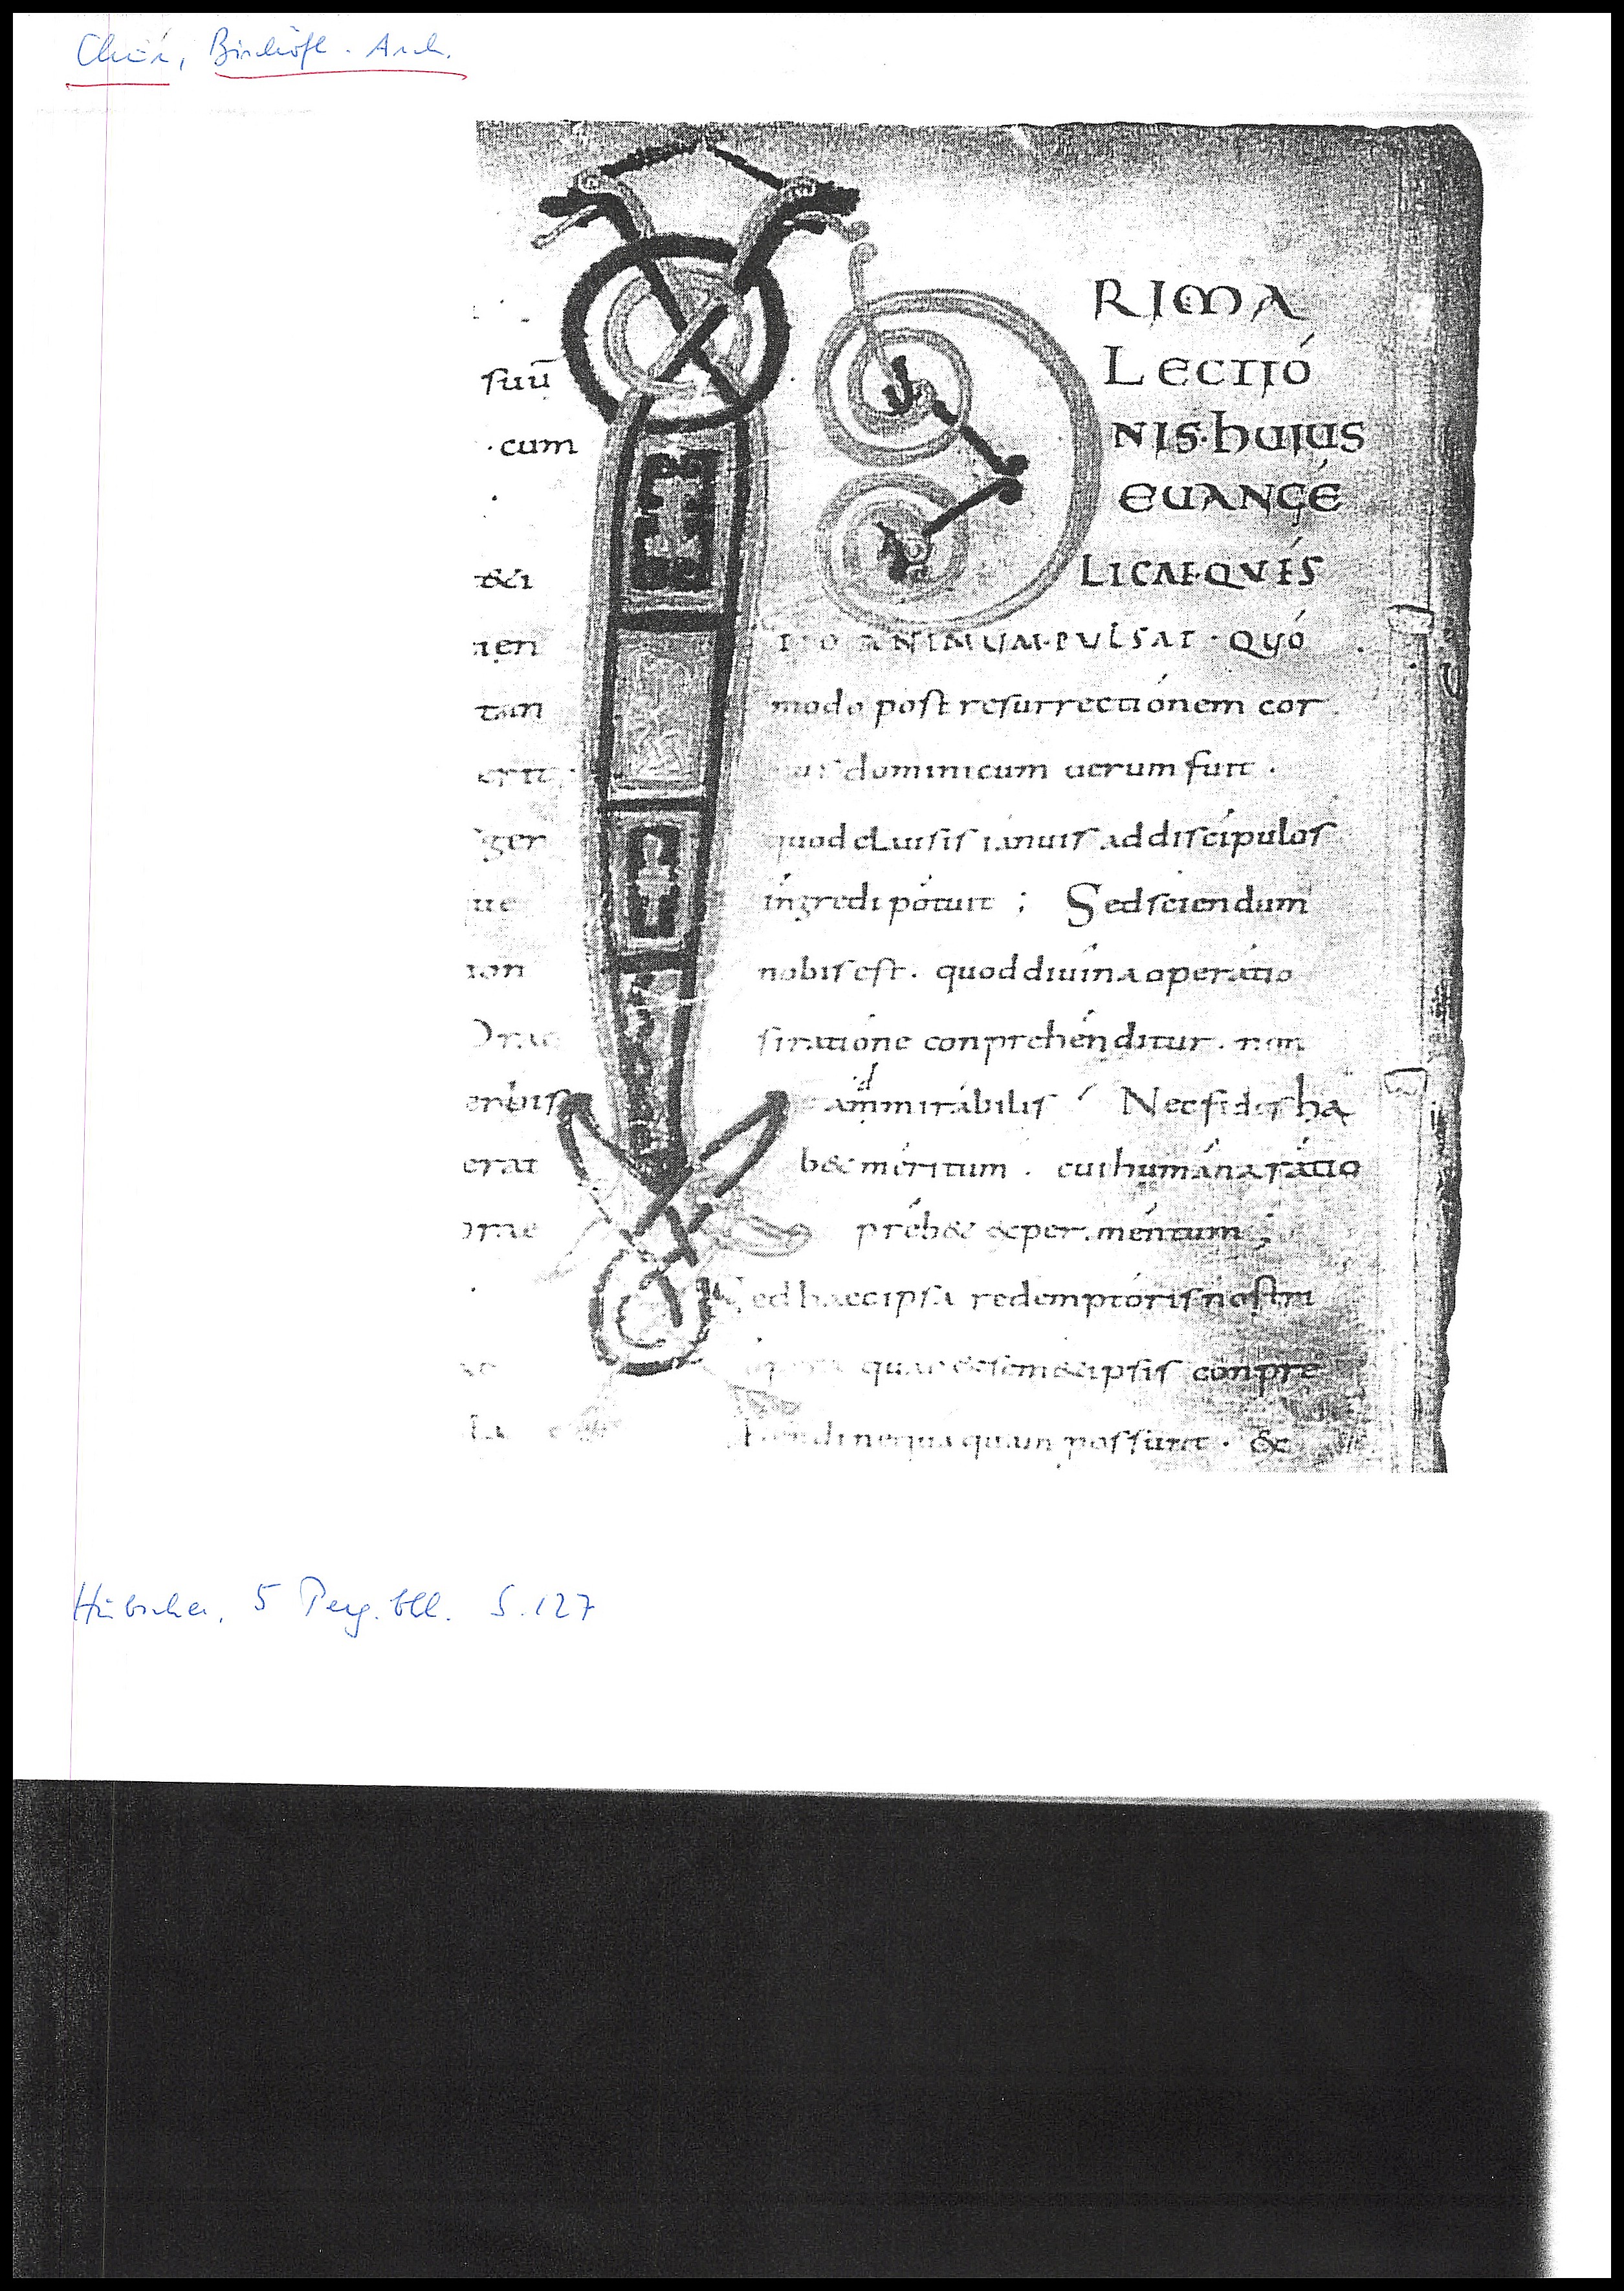 Chur, Bischöfl. Arch.
suū
·cum
&i
men
tan
erit
ger
que
non
Orac
erbis
erat
RIMA
LECTIÓ
NIS·huius
EUANGE
LICAE·QUES
TIO ANIMUM·PULSAT·QUÓ
modo post resurrectiónem cor
pus dominicum uerum fuit .
quod clausis ianuis ad discípulos
íngredi pótuit ; Sed sciendum
nobis est . quod diuina operátio
si ratióne conprehénditur . non
d
ammirábilis Nec fides ha
b& méritum . cui humána rátio
préb& experiméntum ;
Sed haec ipsa redemptóris nostri
quae & sem&ipsis conpre
hendi nequaquam possunt . &
Hübscher, 5 Perg.bll. S.127